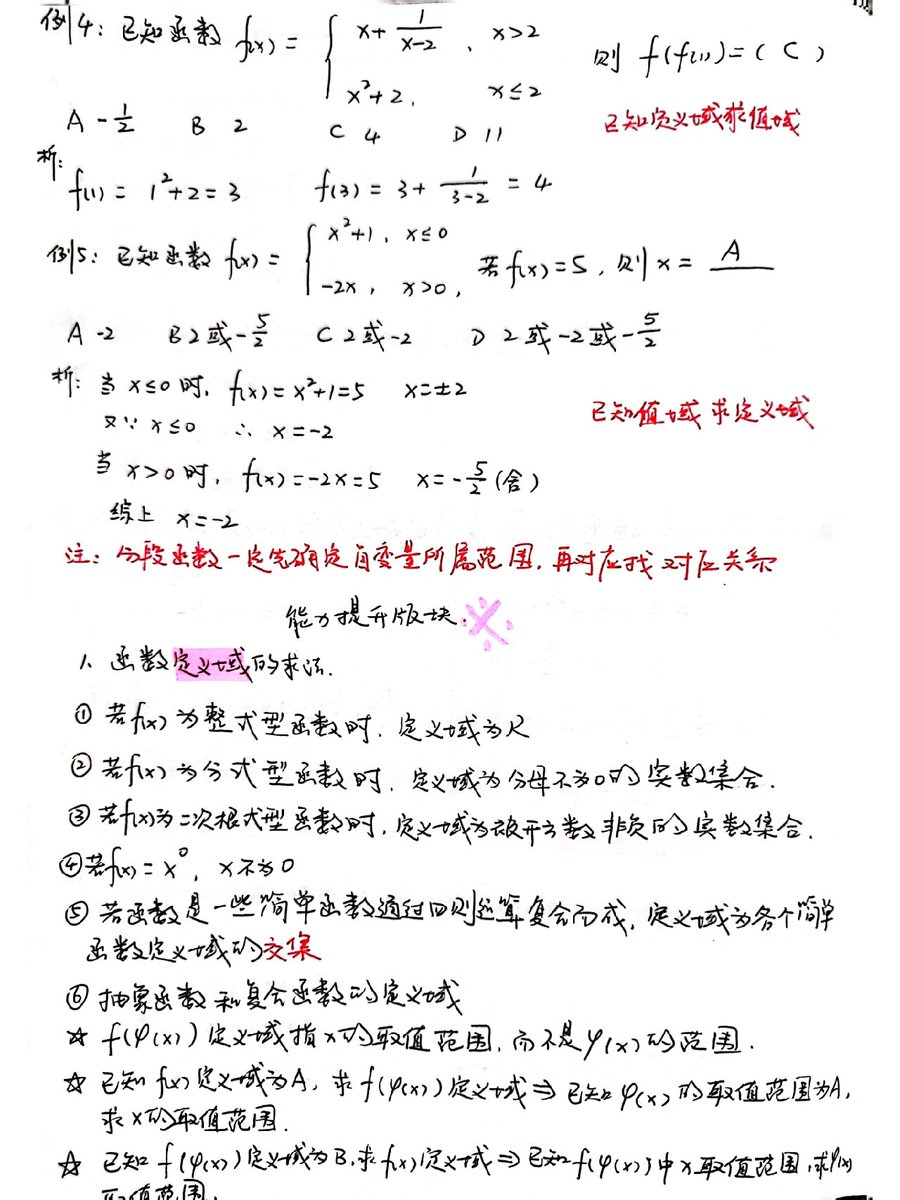 例4: 已知函数 f(x) = { x + 1/(x-2) , x>2
x²+2, x≤2 则 f(f(1))=( C )
A -1/2 B 2 C 4 D 11 已知定义域求值域
析: f(1) = 1²+2=3 f(3) = 3+ 1/(3-2) = 4
例5: 已知函数 f(x) = { x²+1, x≤0
-2x, x>0, 若f(x)=5, 则 x = A
A -2 B 2或-5/2 C 2或-2 D 2或-2或-5/2
析: 当 x≤0 时, f(x)=x²+1=5 x=±2
又∵ x≤0 ∴ x=-2 已知值域求定义域
当 x>0 时, f(x)=-2x=5 x=-5/2(舍)
综上 x=-2
注: 分段函数一定先确定自变量所属范围, 再对应找对应关系
能力提升版块.
1、函数定义域的求法.
① 若f(x)为整式型函数时, 定义域为R
② 若f(x)为分式型函数时, 定义域为分母不为0的实数集合.
③ 若f(x)为二次根式型函数时, 定义域为被开方数非负的实数集合.
④ 若f(x)=x⁰, x不为0
⑤ 若函数是一些简单函数通过四则运算复合而成, 定义域为各个简单
函数定义域的交集
⑥ 抽象函数和复合函数的定义域
☆ f(φ(x))定义域指x的取值范围, 而不是φ(x)的范围.
☆ 已知f(x)定义域为A, 求f(φ(x))定义域⇒已知φ(x)的取值范围为A,
求x的取值范围.
☆ 已知f(φ(x))定义域为B, 求f(x)定义域⇒已知f(φ(x))中x取值范围, 求φ(x)
取值范围.